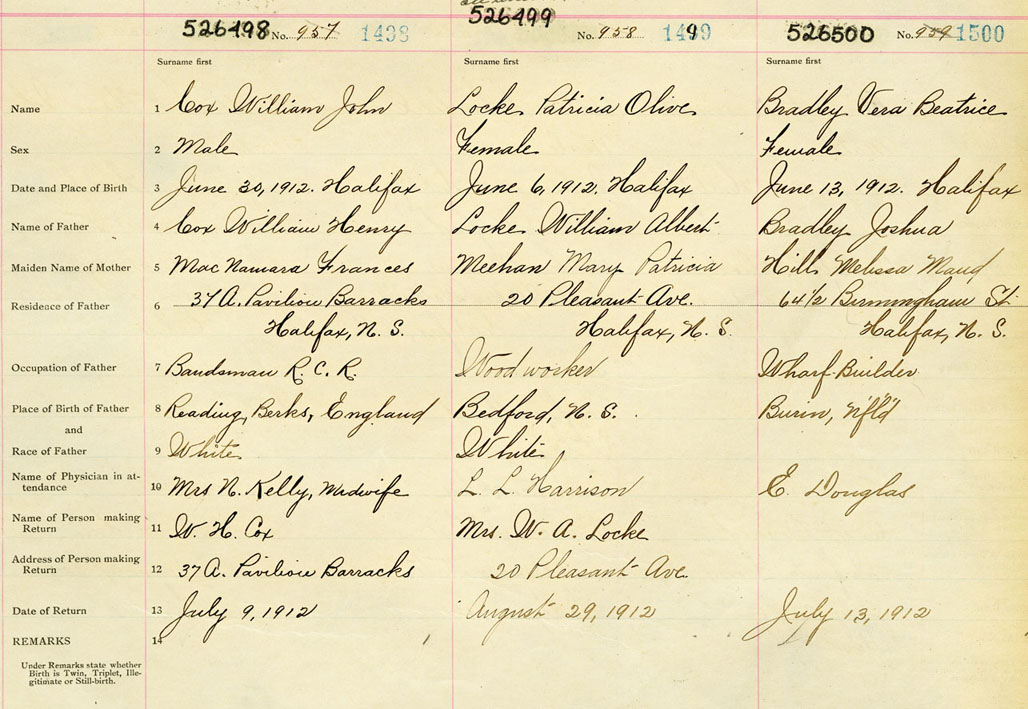 526498 No. 957 1498 526499 No. 958 1499 526500 No. 959 1500
Surname first Surname first Surname first
Name 1 Cox William John Locke Patricia Olive Bradley Vera Beatrice
Sex 2 Male Female Female
Date and Place of Birth 3 June 30, 1912. Halifax June 6, 1912. Halifax June 13, 1912. Halifax
Name of Father 4 Cox William Henry Locke William Albert Bradley Joshua
Maiden Name of Mother 5 MacNamara Frances Meehan Mary Patricia Hill Melissa Maud
Residence of Father 6 37 A. Pavilion Barracks 20 Pleasant Ave. 64 1/2 Birmingham St.
Halifax, N. S. Halifax, N. S. Halifax, N. S.
Occupation of Father 7 Bandsman R. C. R. Wood worker Wharf Builder
Place of Birth of Father 8 Reading, Berks, England Bedford, N. S. Burin, Nfld
and
Race of Father 9 White White
Name of Physician in at-
tendance 10 Mrs N. Kelly, Midwife L. L. Harrison E. Douglas
Name of Person making
Return 11 W. H. Cox Mrs. W. A. Locke
Address of Person making
Return 12 37 A. Pavilion Barracks 20 Pleasant Ave.
Date of Return 13 July 9, 1912 August 29, 1912 July 13, 1912
REMARKS 14
Under Remarks state whether
Birth is Twin, Triplet, Ille-
gitimate or Still-birth.